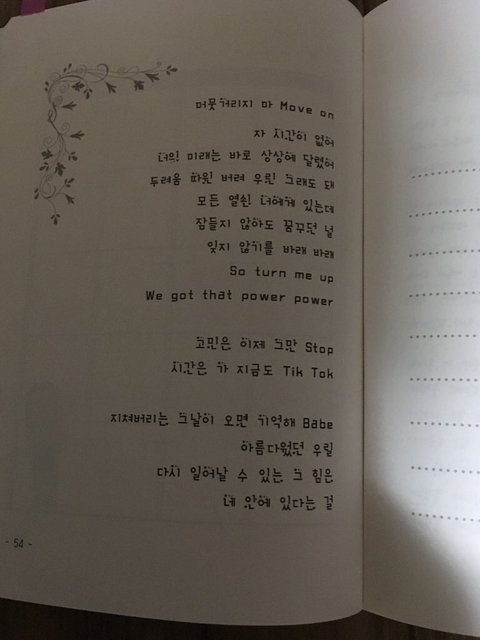 머뭇거리지 마 Move on
자 시간이 없어
너의 미래는 바로 상상에 달렸어
두려움 따윈 버려 우린 그래도 돼
모든 열쇤 너에게 있는데
잠들지 않아도 꿈꾸던 널
잊지 않기를 바래 바래
So turn me up
We got that power power
고민은 이제 그만 Stop
시간은 가 지금도 Tik Tok
지쳐버리는 그날이 오면 기억해 Babe
아름다웠던 우릴
다시 일어날 수 있는 그 힘은
네 안에 있다는 걸
- 54 -